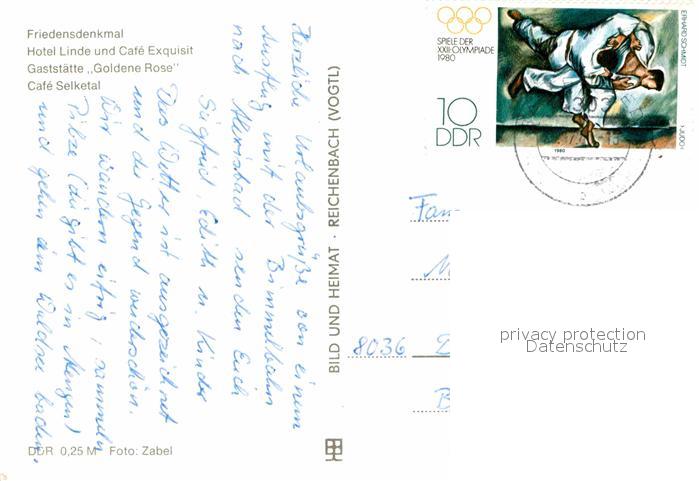 Friedensdenkmal
Hotel Linde und Café Exquisit
Gaststätte „Goldene Rose"
Café Selketal
Herzliche Urlaubsgrüße von einem
Ausflug mit der Bimmelbahn
nach Alexisbad senden Euch
Siegfried, Edith u. Kinder
Das Wetter ist ausgezeichnet
und die Gegend wunderschön.
Wir wandern eifrig, sammeln
Pilze (die gibt es in Mengen)
und gehen im Waldsee baden.
DDR 0,25 M Foto: Zabel
BILD UND HEIMAT · REICHENBACH (VOGTL)
SPIELE DER
XXII.OLYMPIADE
1980
10
DDR
ERHARD SCHMIDT
1980
Fam
M
8036 D
B
privacy protection
Datenschutz